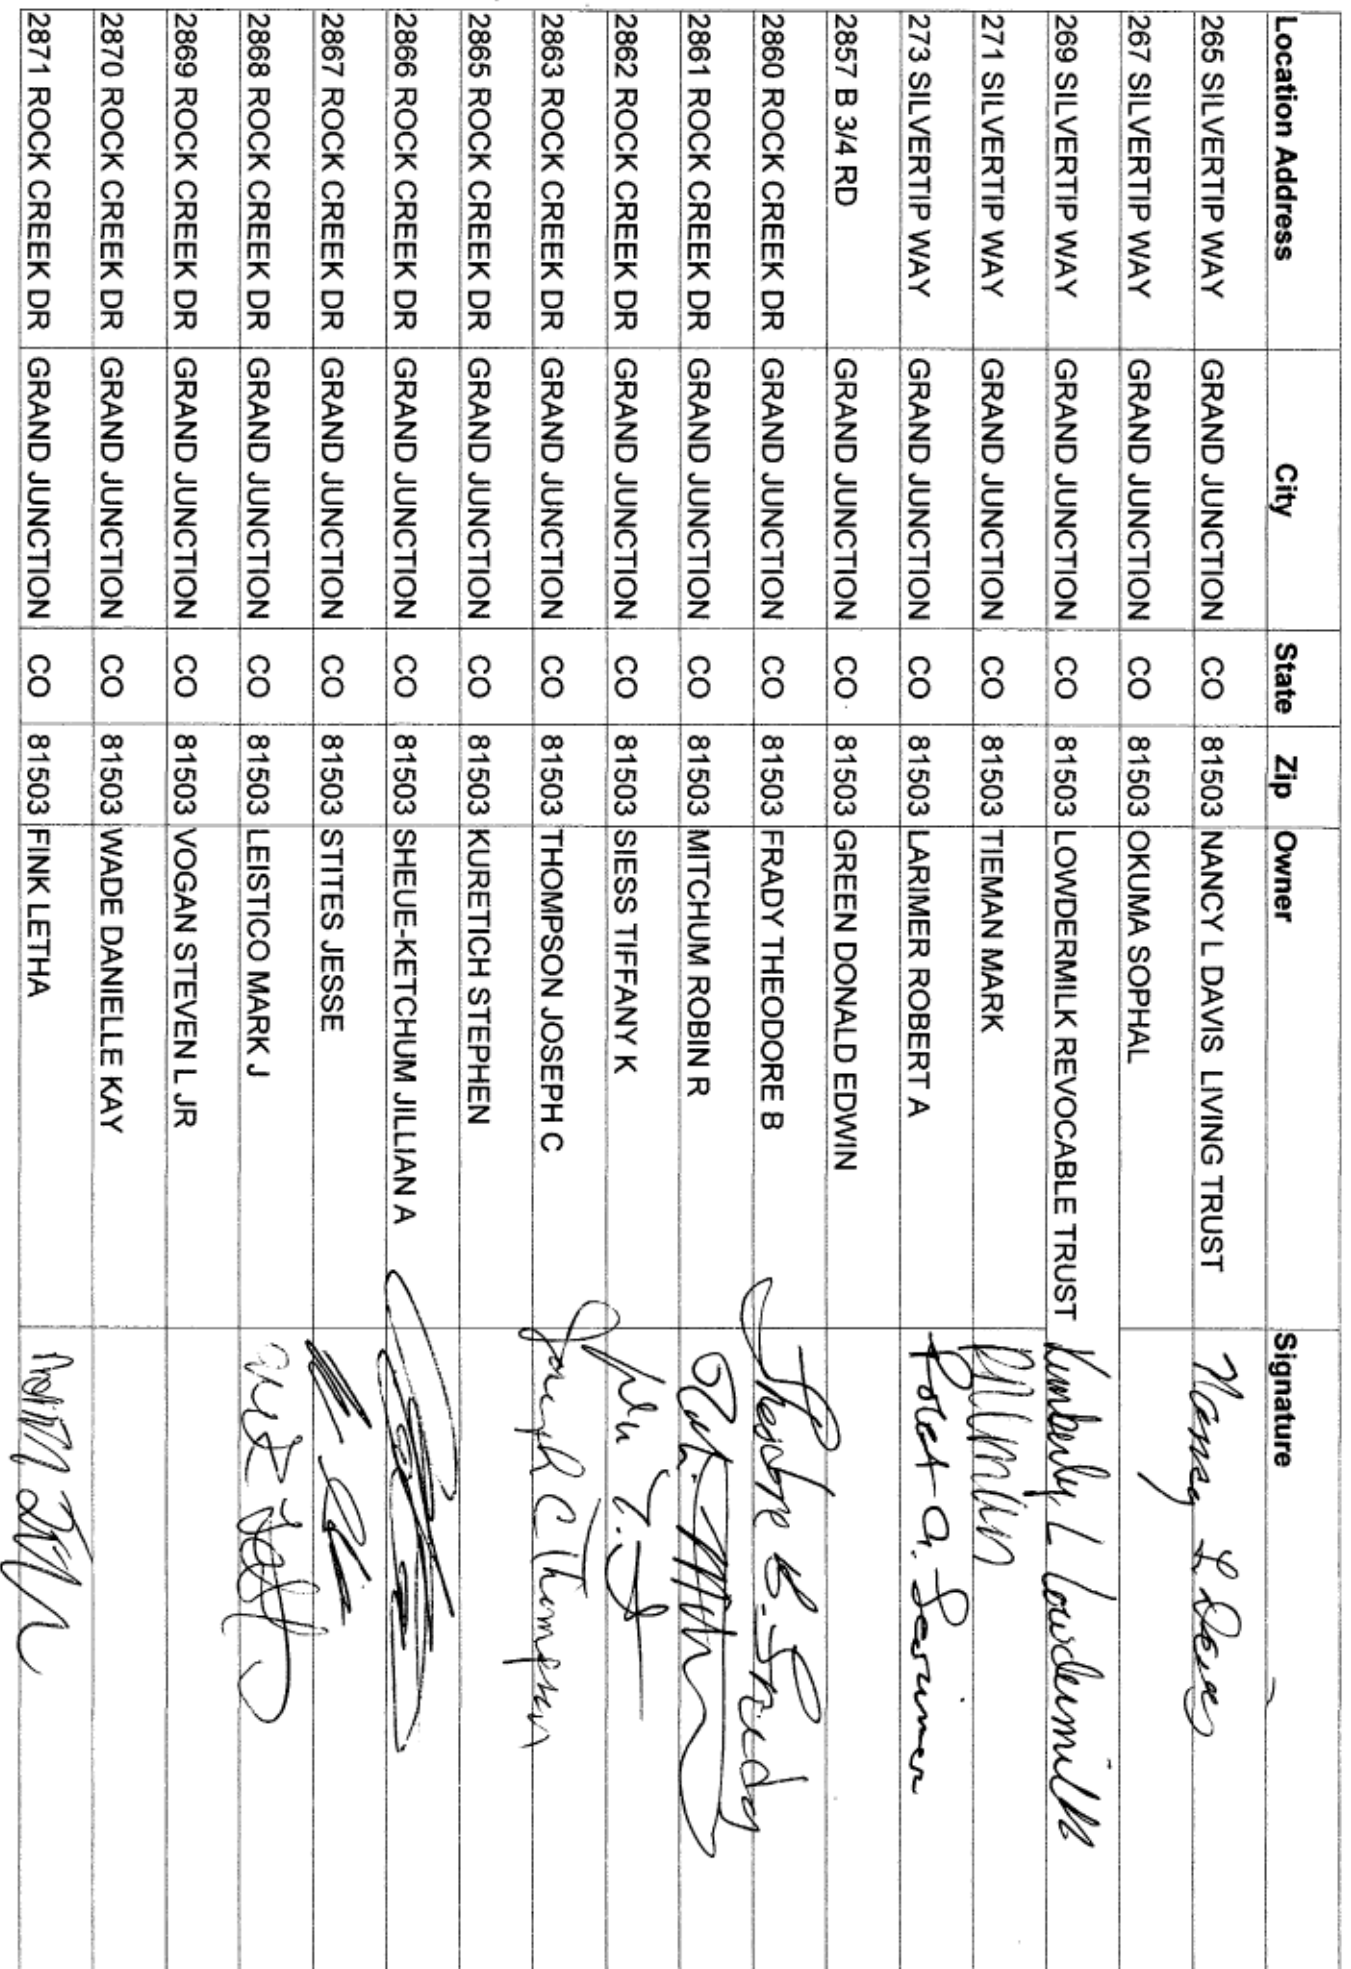 Location Address City State Zip Owner Signature
265 SILVERTIP WAY GRAND JUNCTION CO 81503 NANCY L DAVIS LIVING TRUST Nancy L Davis
267 SILVERTIP WAY GRAND JUNCTION CO 81503 OKUMA SOPHAL
269 SILVERTIP WAY GRAND JUNCTION CO 81503 LOWDERMILK REVOCABLE TRUST Kimberly L Lowdermilk
271 SILVERTIP WAY GRAND JUNCTION CO 81503 TIEMAN MARK
273 SILVERTIP WAY GRAND JUNCTION CO 81503 LARIMER ROBERT A Robert A. Larimer
2857 B 3/4 RD GRAND JUNCTION CO 81503 GREEN DONALD EDWIN
2860 ROCK CREEK DR GRAND JUNCTION CO 81503 FRADY THEODORE B Theodore B. Frady
2861 ROCK CREEK DR GRAND JUNCTION CO 81503 MITCHUM ROBIN R
2862 ROCK CREEK DR GRAND JUNCTION CO 81503 SIESS TIFFANY K
2863 ROCK CREEK DR GRAND JUNCTION CO 81503 THOMPSON JOSEPH C Joseph C Thompson
2865 ROCK CREEK DR GRAND JUNCTION CO 81503 KURETICH STEPHEN
2866 ROCK CREEK DR GRAND JUNCTION CO 81503 SHEUE-KETCHUM JILLIAN A
2867 ROCK CREEK DR GRAND JUNCTION CO 81503 STITES JESSE
2868 ROCK CREEK DR GRAND JUNCTION CO 81503 LEISTICO MARK J
2869 ROCK CREEK DR GRAND JUNCTION CO 81503 VOGAN STEVEN L JR
2870 ROCK CREEK DR GRAND JUNCTION CO 81503 WADE DANIELLE KAY
2871 ROCK CREEK DR GRAND JUNCTION CO 81503 FINK LETHA